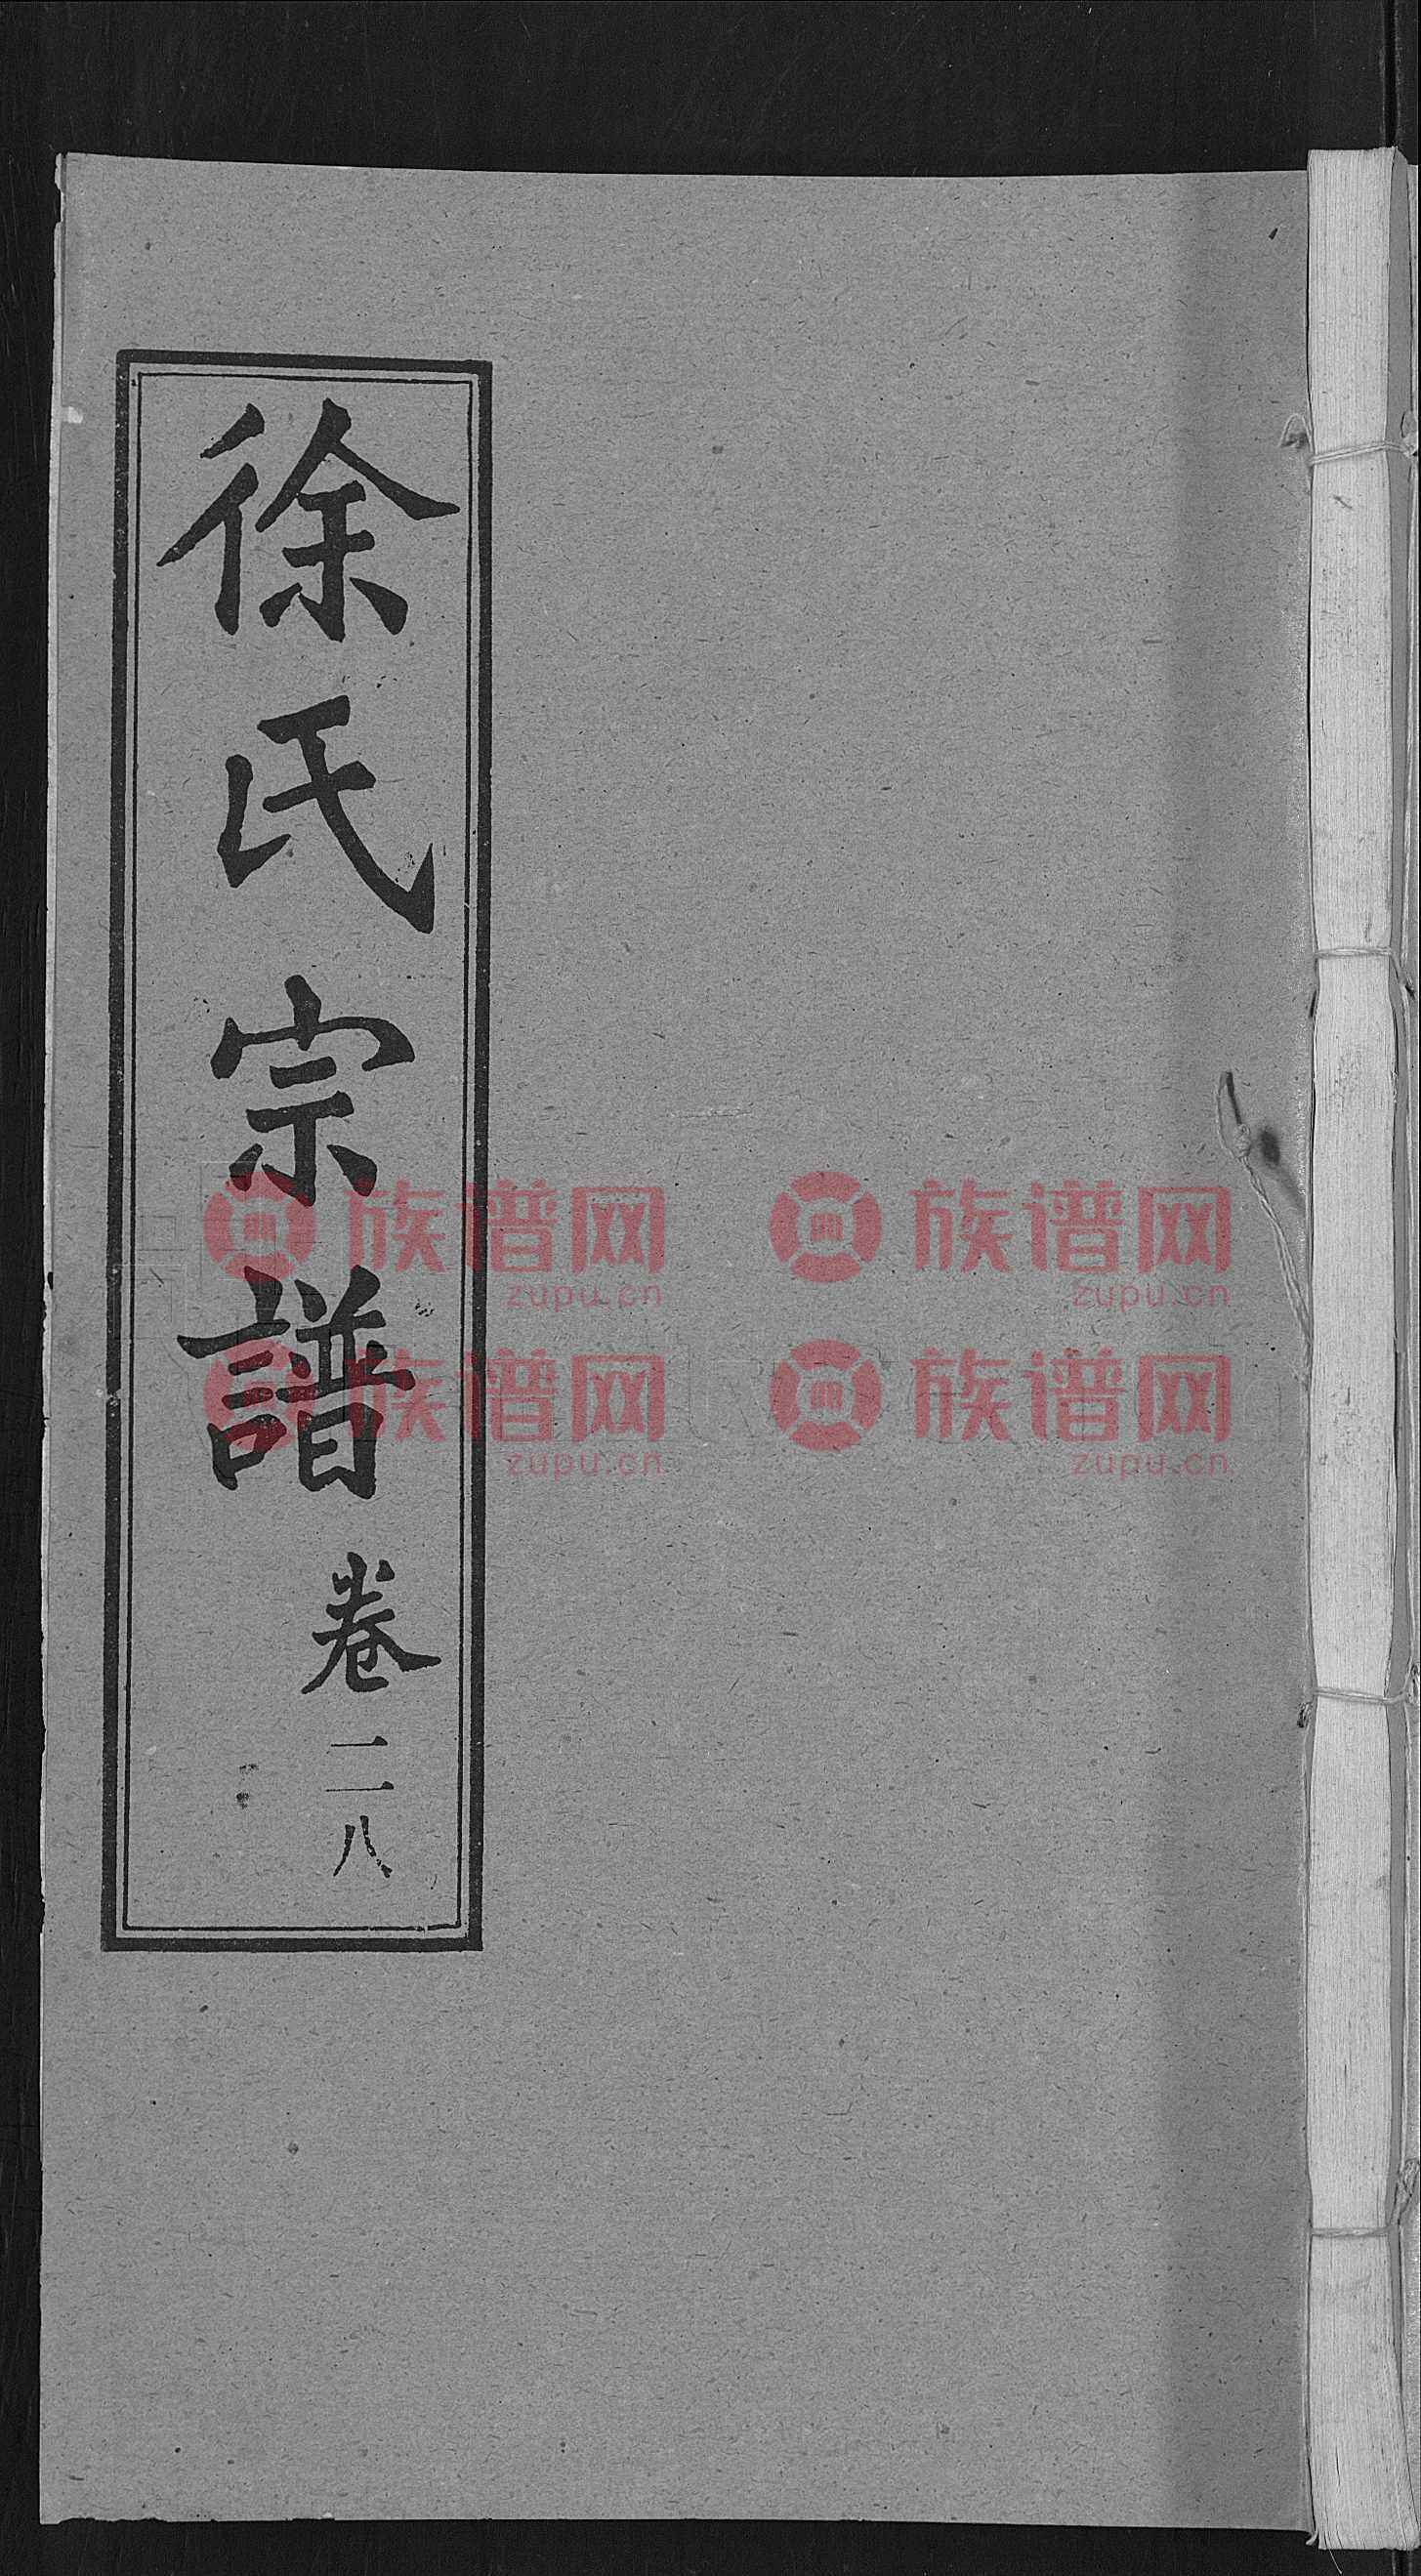 徐氏宗譜
卷二八
族谱网 族谱网
zupu.cn zupu.cn
族谱网 族谱网
zupu.cn zupu.cn